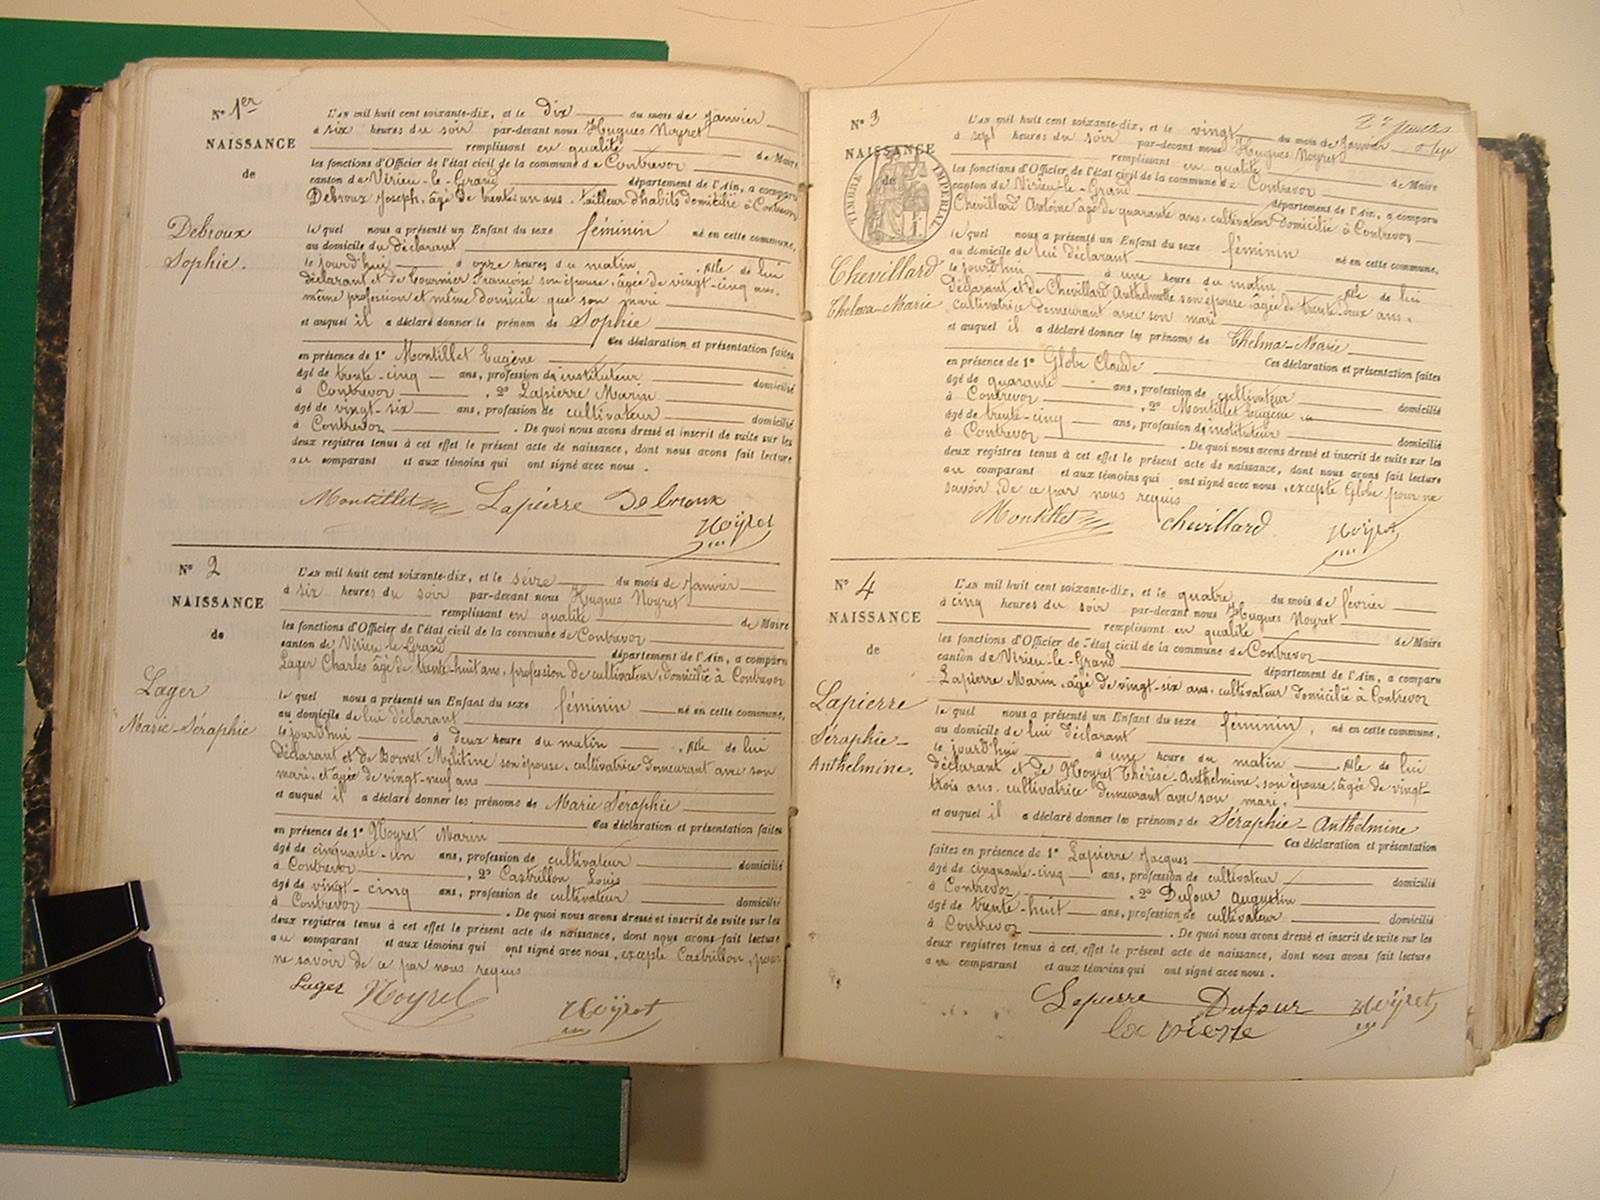 N° 1er
NAISSANCE
de
Debroux
Sophie.
L'AN mil huit cent soixante-dix, et le dix du mois de Janvier
à six heures du soir par-devant nous Hugues Noyret
remplissant en qualité de Maire
les fonctions d'Officier de l'état civil de la commune de Contrevoz
canton de Virieu-le-Grand département de l'Ain, a comparu
Debroux Joseph, âgé de trente un ans, tailleur d'habits domicilié à Contrevoz
lequel nous a présenté un Enfant du sexe féminin né en cette commune,
au domicile du déclarant
le jourd'hui à onze heures du matin, fille de lui
déclarant et de Tournier Françoise son épouse, âgée de vingt-cinq ans,
même profession et même domicile que son mari
et auquel il a déclaré donner le prénom de Sophie
Ces déclaration et présentation faites
en présence de 1° Montillet Eugène
âgé de trente-cinq ans, profession d'instituteur domicilié
à Contrevoz, 2° Lapierre Marin
âgé de vingt-six ans, profession de cultivateur domicilié
à Contrevoz. De quoi nous avons dressé et inscrit de suite sur les
deux registres tenus à cet effet le présent acte de naissance, dont nous avons fait lecture
au comparant et aux témoins qui ont signé avec nous.
Montillet Lapierre Debroux
Noÿret
N° 2
NAISSANCE
de
Lager
Marie-Séraphie
L'AN mil huit cent soixante-dix, et le seize du mois de Janvier
à six heures du soir par-devant nous Hugues Noyret
remplissant en qualité de Maire
les fonctions d'Officier de l'état civil de la commune de Contrevoz
canton de Virieu le Grand département de l'Ain, a comparu
Lager Charles âgé de trente-huit ans, profession de cultivateur, domicilié à Contrevoz
lequel nous a présenté un Enfant du sexe féminin né en cette commune,
au domicile de lui déclarant
le jourd'hui à deux heure du matin, fille de lui
déclarant et de Bonnet Mélitine son épouse, cultivatrice demeurant avec son
mari, et âgée de vingt-neuf ans
et auquel il a déclaré donner les prénoms de Marie Séraphie
Ces déclaration et présentation faites
en présence de 1° Noyret Marin
âgé de cinquante-un ans, profession de cultivateur domicilié
à Contrevoz, 2° Castrillon Louis
âgé de vingt-cinq ans, profession de cultivateur domicilié
à Contrevoz. De quoi nous avons dressé et inscrit de suite sur les
deux registres tenus à cet effet le présent acte de naissance, dont nous avons fait lecture
au comparant et aux témoins qui ont signé avec nous, excepté Castrillon, pour
ne savoir de ce par nous requis
Lager Noyret Noÿret
N° 3
NAISSANCE
de
TIMBRE IMPERIAL
Chevillard
Thelma-Marie
L'AN mil huit cent soixante-dix, et le vingt du mois de Janvier
à sept heures du soir par-devant nous Hugues Noyret
remplissant en qualité de Maire
les fonctions d'Officier de l'état civil de la commune de Contrevoz
canton de Virieu-le-Grand département de l'Ain, a comparu
Chevillard Antoine âgé de quarante ans, cultivateur domicilié à Contrevoz
lequel nous a présenté un Enfant du sexe féminin né en cette commune,
au domicile de lui déclarant
le jourd'hui à une heure du matin, fille de lui
déclarant et de Chevillard Anthelmette son épouse, âgée de trente-deux ans,
cultivatrice demeurant avec son mari
et auquel il a déclaré donner les prénoms de Thelma-Marie
Ces déclaration et présentation faites
en présence de 1° Globe Claude
âgé de quarante ans, profession de cultivateur domicilié
à Contrevoz, 2° Montillet Eugène
âgé de trente-cinq ans, profession d'instituteur domicilié
à Contrevoz. De quoi nous avons dressé et inscrit de suite sur les
deux registres tenus à cet effet le présent acte de naissance, dont nous avons fait lecture
au comparant et aux témoins qui ont signé avec nous, excepté Globe pour ne
savoir de ce par nous requis
Montillet Chevillard Noÿret
N° 4
NAISSANCE
de
Lapierre
Séraphie-
Anthelmine.
L'AN mil huit cent soixante-dix, et le quatre du mois de février
à cinq heures du soir par-devant nous Hugues Noyret
remplissant en qualité de Maire
les fonctions d'Officier de l'état civil de la commune de Contrevoz
canton de Virieu-le-Grand département de l'Ain, a comparu
Lapierre Marin, âgé de vingt-six ans, cultivateur domicilié à Contrevoz
lequel nous a présenté un Enfant du sexe féminin, né en cette commune,
au domicile de lui déclarant
le jourd'hui à une heure du matin, fille de lui
déclarant et de Noyret Thérèse-Anthelmine, son épouse, âgée de vingt-
trois ans, cultivatrice demeurant avec son mari,
et auquel il a déclaré donner les prénoms de Séraphie-Anthelmine
Ces déclaration et présentation
faites en présence de 1° Lapierre Jacques
âgé de cinquante-cinq ans, profession de cultivateur domicilié
à Contrevoz, 2° Dufour Augustin
âgé de trente-huit ans, profession de cultivateur domicilié
à Contrevoz. De quoi nous avons dressé et inscrit de suite sur les
deux registres tenus à cet effet le présent acte de naissance, dont nous avons fait lecture
au comparant et aux témoins qui ont signé avec nous.
Lapierre Dufour Noÿret
la pierre